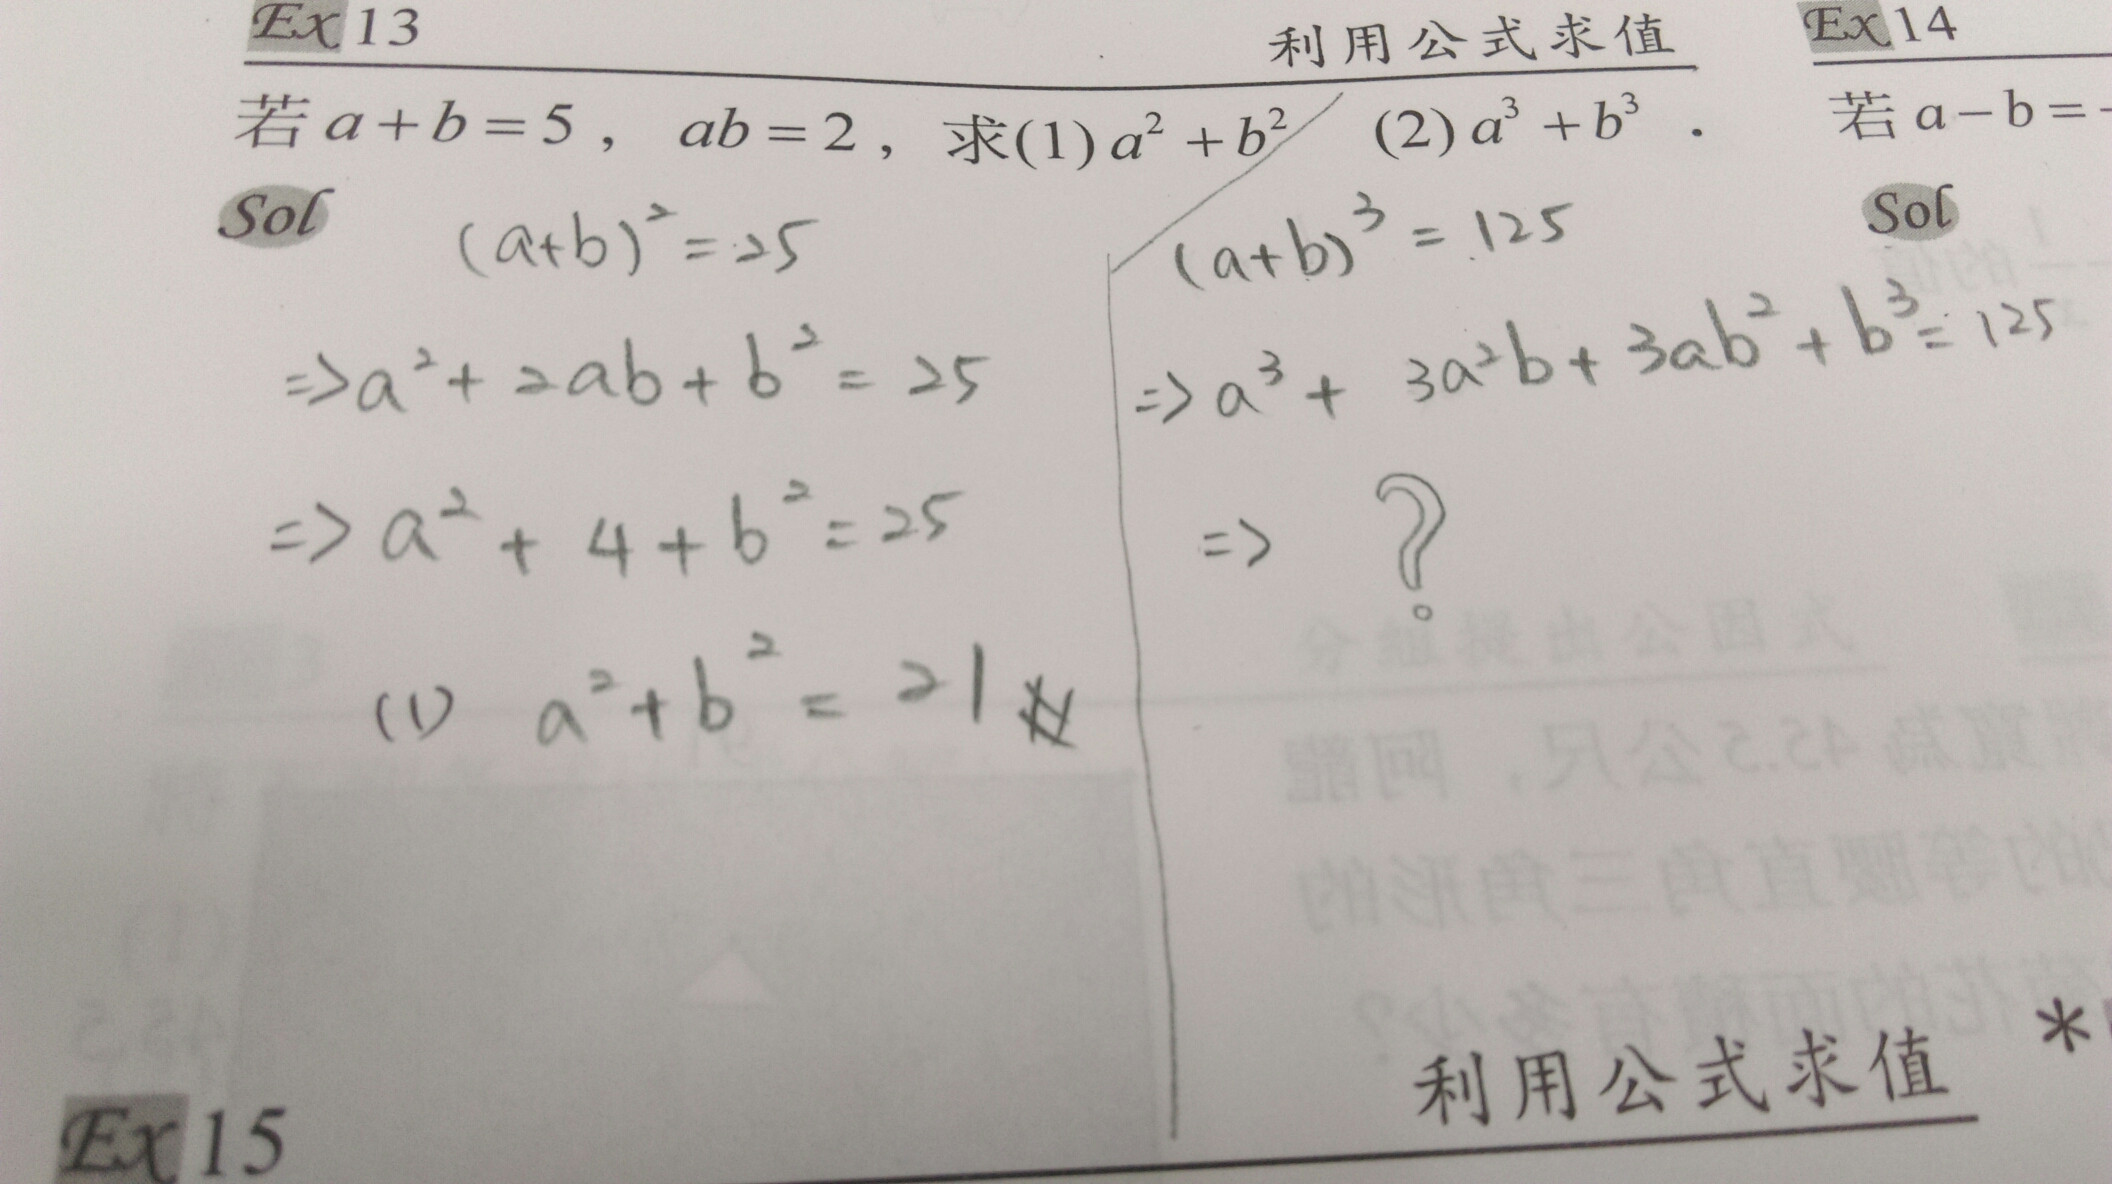 Ex 13 利用公式求值
若 a + b = 5 , ab = 2 , 求(1) a² + b² (2) a³ + b³ .
Sol
(a+b)² = 25
=> a² + 2ab + b² = 25
=> a² + 4 + b² = 25
(1) a² + b² = 21 #
(a+b)³ = 125
=> a³ + 3a²b + 3ab² + b³ = 125
=> ?
Ex 14
若 a − b =
Sol
Ex 15 利用公式求值
*